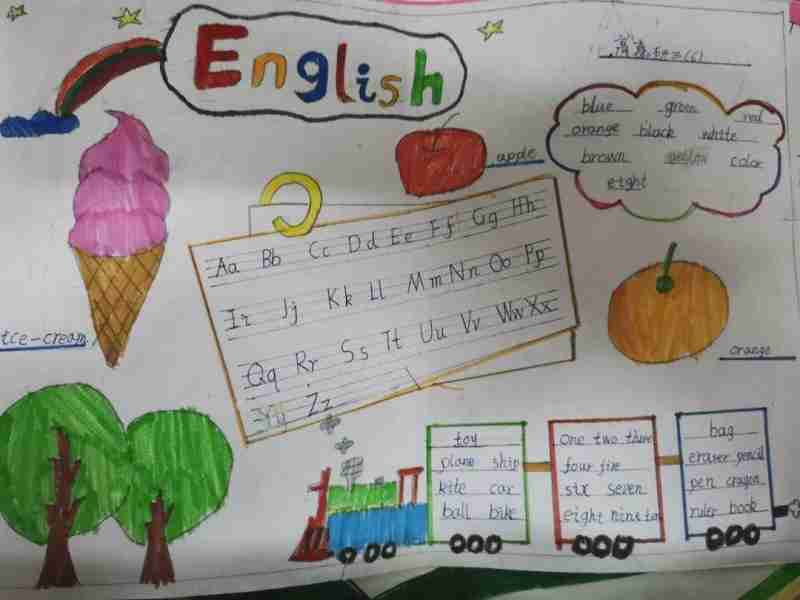 English
blue green red
orange black white
brown yellow color
eight
apple
Aa Bb Cc Dd Ee Ff Gg Hh
Ii Jj Kk Ll Mm Nn Oo Pp
Qq Rr Ss Tt Uu Vv Ww Xx
Yy Zz
ice-cream
orange
toy
plane ship
kite car
ball bike
one two three
four five
six seven
eight nine ten
bag
eraser pencil
pen crayon
ruler book